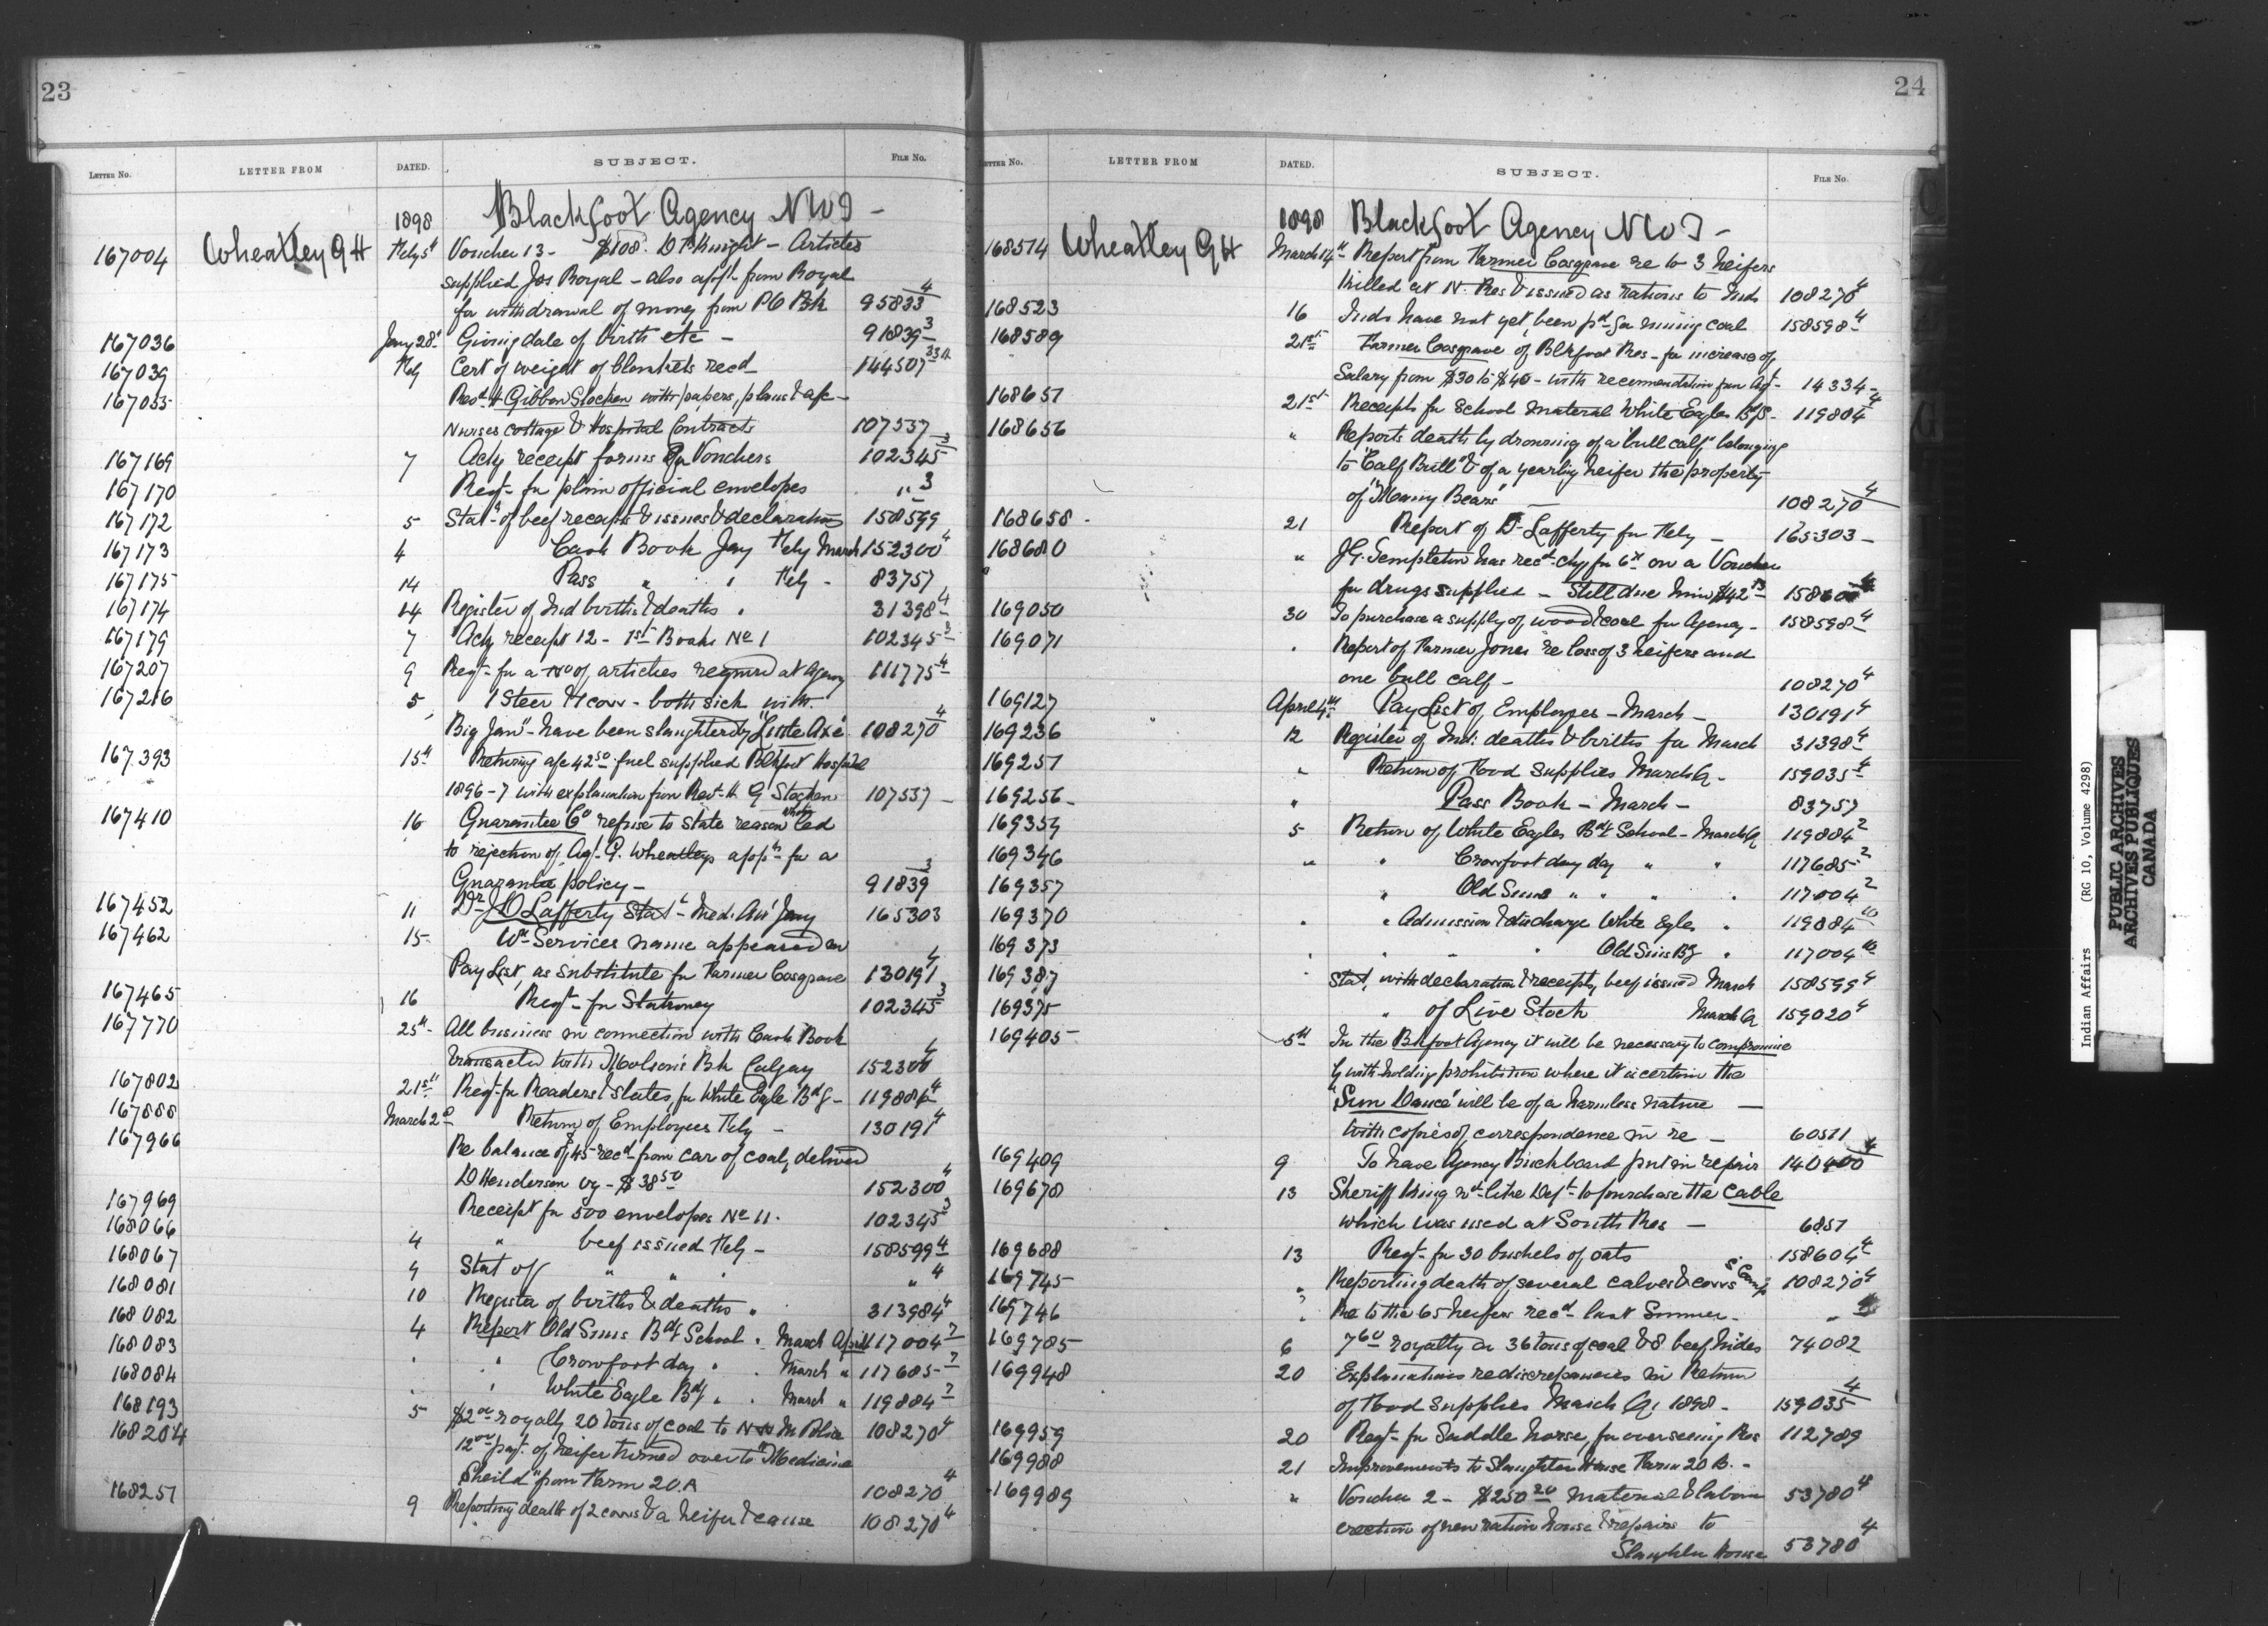 23
LETTER NO. LETTER FROM DATED. SUBJECT. FILE NO.
1898 Blackfoot Agency NWT -
167004 Wheatley GH Feby 5th Voucher 13 - $108. D McKnight - Articles
supplied Jos Royal - also appn from Royal
for withdrawal of money from PO Bk 95833 4
167036 Jany 28th Giving date of birth etc - 91839 3
167039 Feby Cert of weight of blankets recd 144507 33A
167055 Revd H Gibbon Stocken with papers, plans & a/c -
Nurses cottage & Hospital Contracts 107537
167169 7 Ackg receipt forms for Vouchers 102345 3
167170 Reqt - for plain official envelopes " 3
167172 5 Stat - of beef receipts & issues & declaration 158599
167173 4 Cash Book Jany Feby March 152300 4
167175 14 Pass " " Feby - 83757
167174 14 Register of Ind births & deaths " 31398 4
167179 7 Ackg receipt 12 - 1st Books No 1 102345 3
167207 9 Reqt - for a no of articles required at Agency 111775 4
167216 5 1 Steer & 1 cow - both sick with
"Big Jaw" - have been slaughtered by "Little Axe" 108270 4
167393 15th Returning a/c 42 50 fuel supplied Blkfoot Hospital
1896-7 with explanation from Revd H G Stocken 107537 -
167410 16 Guarantee Co refuse to state reason which led
to rejection of Agt - G. Wheatleys appn for a
Guarantee policy - 91839 3
167452 11 Dr J D Lafferty Stat - Med. Att Jany 165303
167462 15 - Wm Services name appeared on
Pay List, as substitute for Farmer Cosgrave 130191 4
167465 16 Reqt - for Stationery 102345 3
167770 25th - All business in connection with Cash Book
transacted with Molson's Bk Calgary 152300 4
167802 21st Reqt - for Readers & slates, for White Eagle Bdg - 119884 4
167888 March 2d Return of Employees Feby - 130191 4
167966 Re balance of $45 recd from car of coal, delivered
D Henderson by - $38 50 152300 4
167969 Receipt for 500 envelopes No 11. 102345 3
168066 4 " beef issued Feby - 158599 4
168067 9 Stat of " " " " 4
168081 10 Register of births & deaths " 313984 4
168082 4 Report Old Suns Bdg School " March April 117004 2
168083 " " Crowfoot day " " March " 117685 - 2
168084 " " White Eagle Bdg " " March " 119884 2
168193 5 $2 00 royalty 20 tons of coal to N W M Police 108270 4
168204 12 00 payt. of heifer turned over to "Medicine
Sheild" from Farm 20.A 108270 4
168251 9 Reporting death of 2 cows & a heifer & cause 108270 4
24
LETTER NO. LETTER FROM DATED. SUBJECT. FILE NO.
1898 Blackfoot Agency NWT -
168514 Wheatley GH March 14th Report from Farmer Cosgrave re to 3 heifers
killed at N. Res & issued as rations to Inds 108270 4
168523 16 Inds have not yet been pd for mining coal 158598 4
168589 21st Farmer Cosgrave of Blkfoot Res - for increase of
Salary from $30 to $40 - with recommendation from Agt - 14334 -
168651 21st Receipts for School material White Eagles Bdg 119804 4
168656 " Reports death by drowning of a "bull calf" belonging
to "Calf Bull" & of a yearling heifer the property
of "Many Bears" - 108270 4
168658 - 21 Report of Dr Lafferty for Feby - 165303 -
168680 " J.G. Templeton has recd chq for 6 on a Voucher
for drugs supplied - Still due him $42 158600 4
169050 30 To purchase a supply of wood & coal for Agency - 158598 4
169071 " Report of Farmer Jones re loss of 3 heifers and
one bull calf - 108270 4
169127 April 4th Pay List of Employees - March - 130191 4
169236 12 Register of Ind: deaths & births for March 31398 4
169251 " Return of Food Supplies March Q - 159035 4
169256 - " Pass Book - March - 83757
169354 5 Return of White Eagles Bdg School - March Q 119884 2
169346 " " Crowfoot day day " " 117685 - 2
169357 " Old Suns " " " " 117004 2
169370 " " Admission & discharge White Eagle " 119884 10
169373 " " " " Old Suns Bg " 117004 10
169387 " Stat, with declaration & receipts, beef issued March 158599 4
169375 " of Live Stock March Q 159020 4
169405 5th In the Blkfoot Agency it will be necessary to compromise
by withholding prohibition where it is certain the
"Sun Dance" will be of a harmless nature -
with copies of correspondence in re - 60511 4
169409 9 To have Agency Buckboard put in repair 140400
169678 13 Sheriff King wd like Dept to purchase the Cable
which was used at South Res - 6851
169688 13 Reqt - for 30 bushels of oats 158604 4
169745 " Reporting death of several calves & cows S Camp 108270 4
169746 " Re to the 65 heifers recd last Summer - "
169785 6 7 60 royalty on 36 tons of coal & 8 beef hides 74082
169948 20 Explanations re discrepancies in Return
of Food Supplies March Q 1898 - 159035 4
169959 20 Reqt - for Saddle horse, for overseeing Res 112789
169988 21 Improvements to Slaughter House Farm 20 B. -
169989 " Voucher 2 - $250 20 material & labour 53780 4
erection of new ration house & repairs to
Slaughter House 53780 4
Indian Affairs (RG 10, Volume 4298)
PUBLIC ARCHIVES
ARCHIVES PUBLIQUES
CANADA